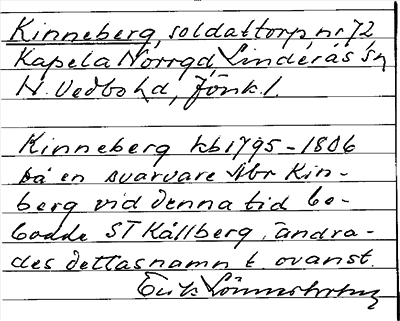 Kinneberg, soldattorp, nr 72,
Kapela Norrgd, Linderås sn
N. Vedbo hd, Jönk. l.
Kinneberg kb 1795-1806
på en svarvare Abr Kin-
berg vid denna tid be-
bodde ST Källberg. Ändra-
des dettas namn t. ovanst.
Erik